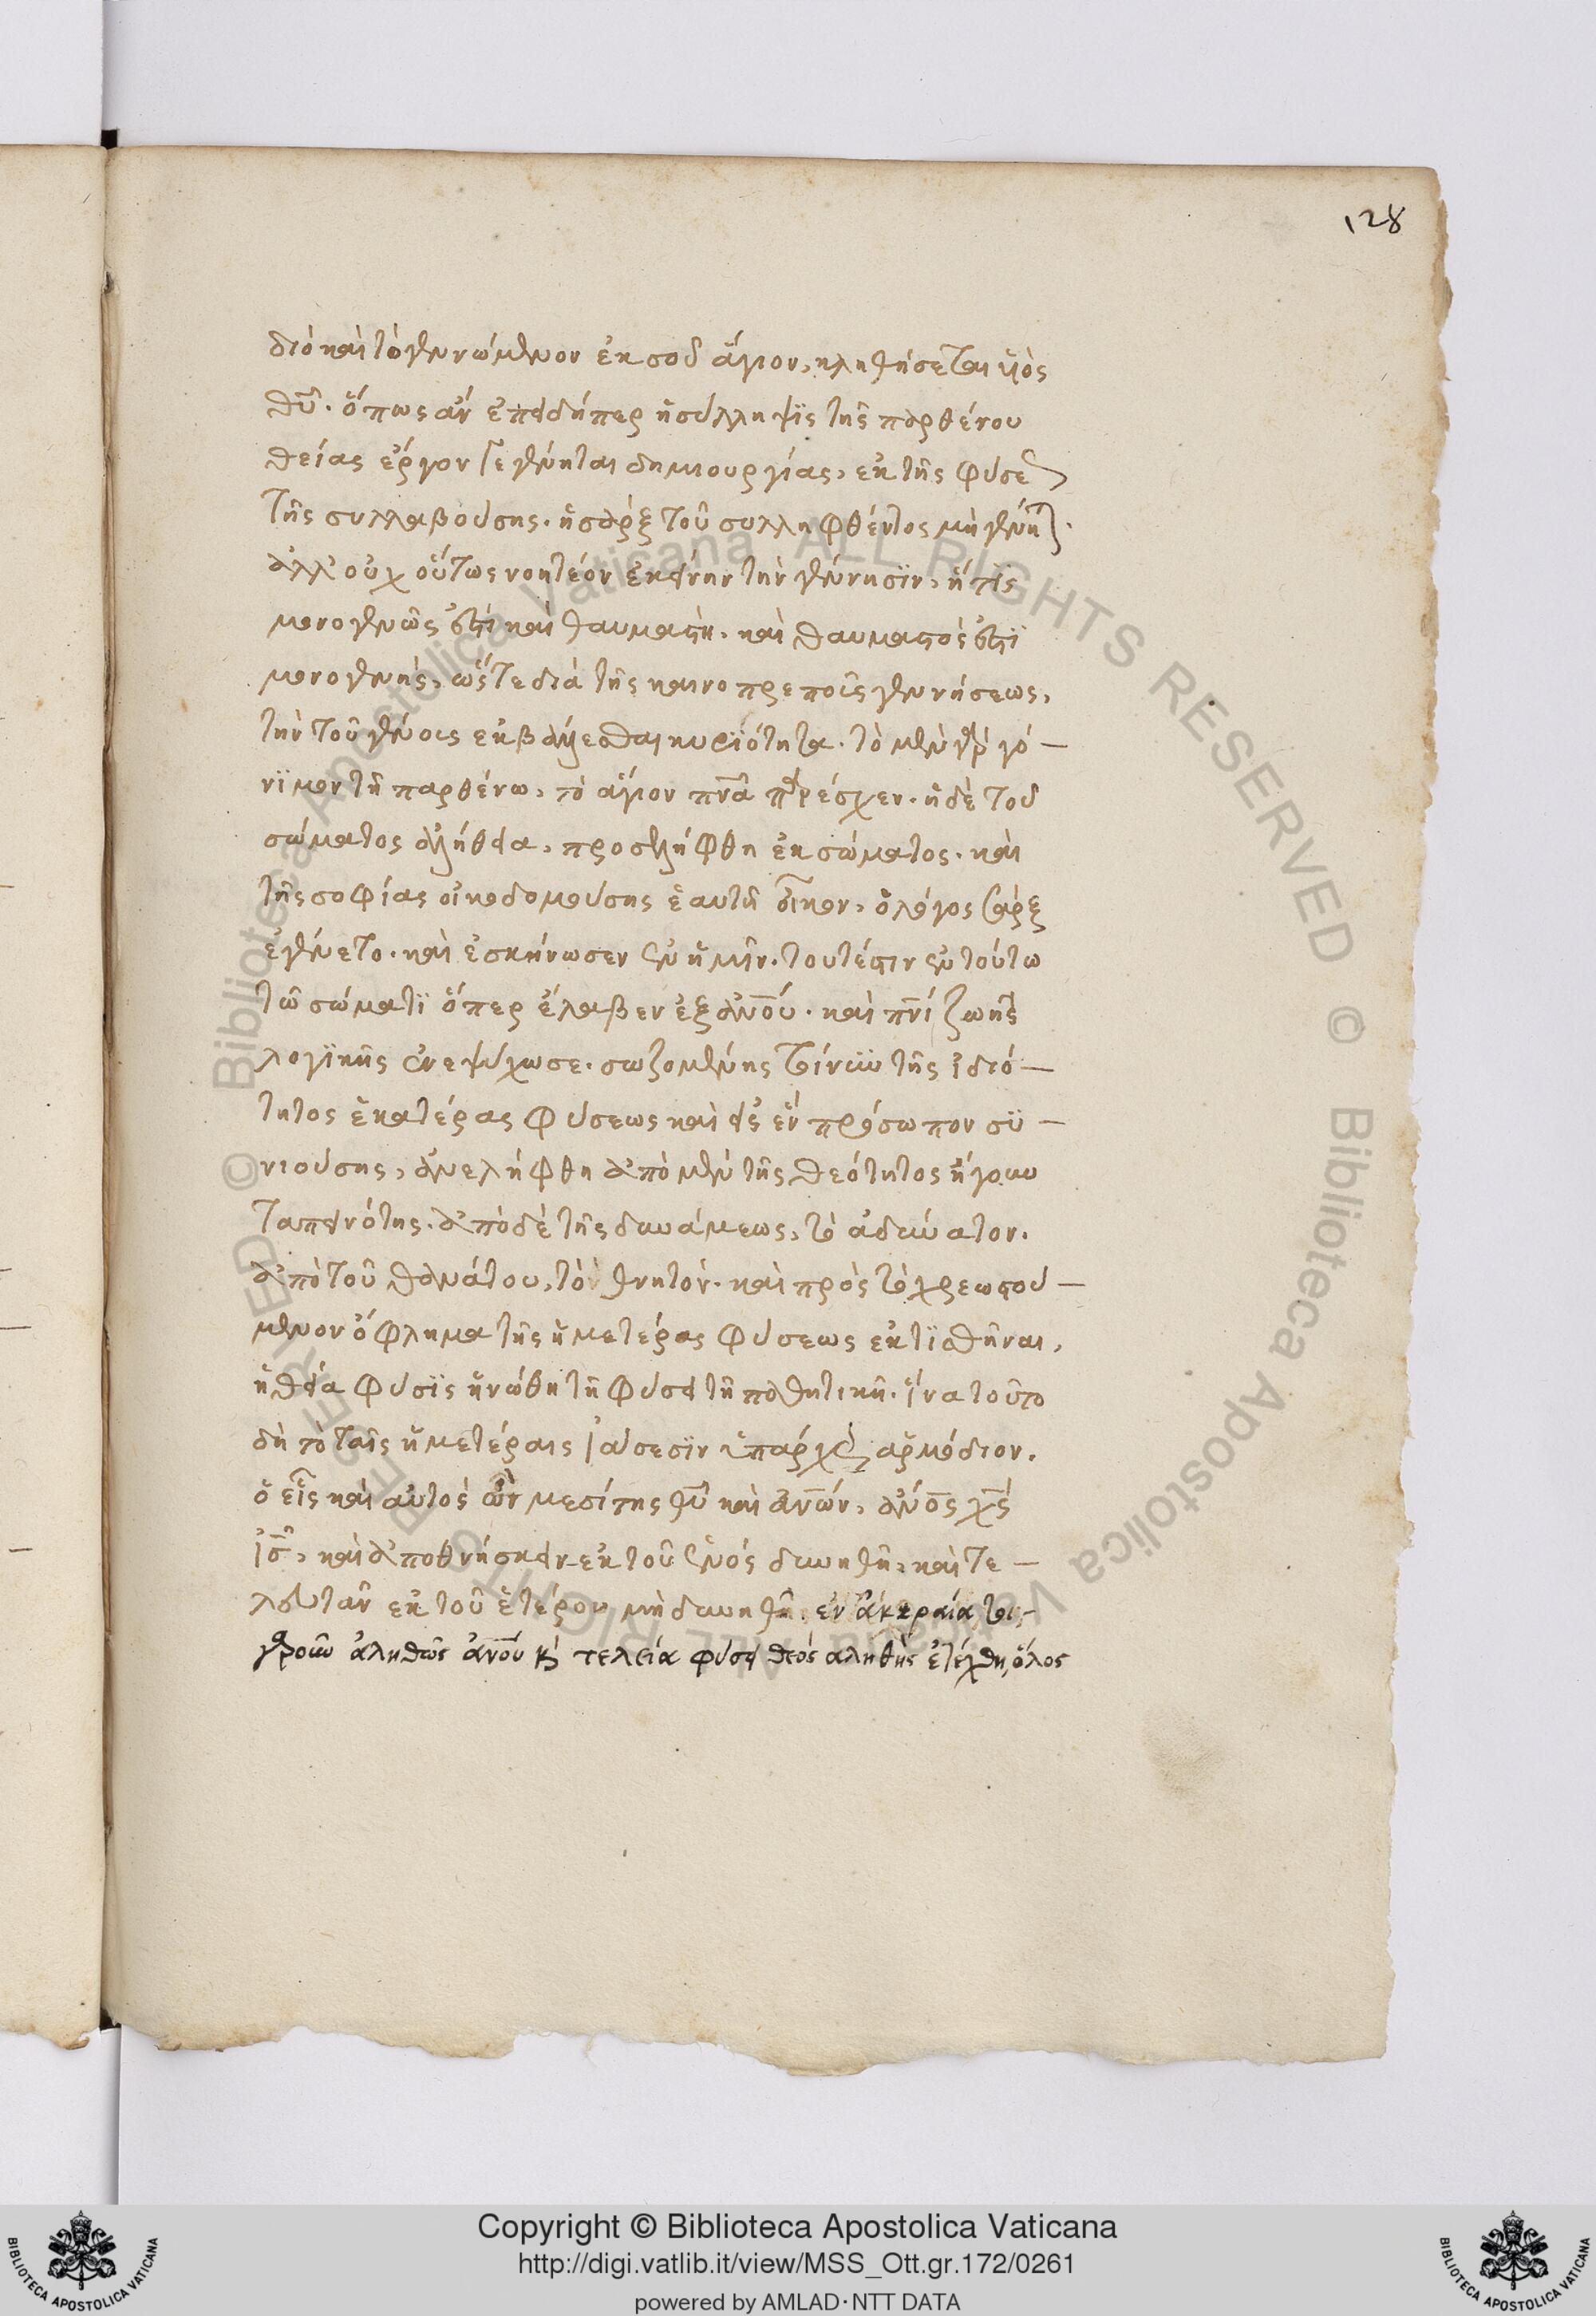 128
διὸ καὶ τὸ γεννώμενον ἐκ σοῦ ἅγιον, κληθήσεται υἱὸς
θῦ. ὅπως ἂν ἐπειδήπερ ἡ σύλληψϊς τῆς παρθένου
θείας ἔργον γεγένηται δημιουργίας, ἐκ τῆς φύσε
τῆς συλλαβούσης. ἡ σὰρξ τοῦ συλληφθέντος μὴ
ἀλλ' οὐχ οὕτως νοητέον ἐκείνην τὴν γέννησϊν, ἥτϊς
μονογενῶς ἐστὶ καὶ θαυμαστὴ. καὶ θαυμαστός ἐστϊ
μονογενής, ὥστε διὰ τῆς καινοπρεποῦς γεννήσεως,
τὴν τοῦ γένους ἐκβάλλεσθαι κυριότητα. τὸ μὲν γὰρ γό-
νϊμον τῇ παρθένω, τὸ ἅγιον πνᾶ παρέσχεν. ἡ δὲ τοῦ
σώματος ἀλήθεια, προσελήφθη ἐκ σώματος. καὶ
τῆς σοφίας οἰκοδομούσης ἑαυτῇ οἶκον, ὁ λόγος σάρξ
ἐγένετο. καὶ ἐσκήνωσεν ἐν ἡμῖν. τουτέστιν ἐν τούτω
τῶ σώματϊ ὅπερ ἔλαβεν ἐξ ἀνοῦ. καὶ πνί ζωῆς
λογϊκῆς ἐνεψύχωσε. σωζομένης τοίνυν τῆς ἰδιό-
τητος ἑκατέρας φύσεως καὶ εἰς ἓν πρόσωπον συ-
νιούσης, ἀνελήφθη ἀπὸ μὲν τῆς θεότητος ἤγουν
ταπεινότης. ἀπὸ δὲ τῆς δυνάμεως, τὸ ἀδύνατον.
ἀπὸ τοῦ θανάτου, τὸ θνητόν. καὶ πρὸς τὸ χρεωστού-
μενον ὄφλημα τῆς ἡμετέρας φύσεως ἐκτϊθῆναι,
ἡ θεία φύσϊς ἡνώθη τῇ φύσει τῇ παθητικῇ. ἵνα τοῦτο
δὴ τὸ ταῖς ἡμετέραις ἰάσεσϊν ὑπάρχει ἁρμόδιον.
ὁ εἷς καὶ αὐτὸς ὢν μεσίτης θῦ καὶ ἀνῶν, ἀνὸς χς
ἰς, καὶ ἀποθνήσκειν ἐκ τοῦ ἑνὸς δυνηθῆ, καὶ τε-
λευτᾶν ἐκ τοῦ ἑτέρου μὴ δυνηθῆ. ἐν ἀκεραία τοι-
γαροῦν ἀληθῶς ἀνοῦ καὶ τελεία φύσει θεὸς ἀληθὴς ἐτέχθη, ὅλος
Copyright © Biblioteca Apostolica Vaticana
http://digi.vatlib.it/view/MSS_Ott.gr.172/0261
powered by AMLAD·NTT DATA